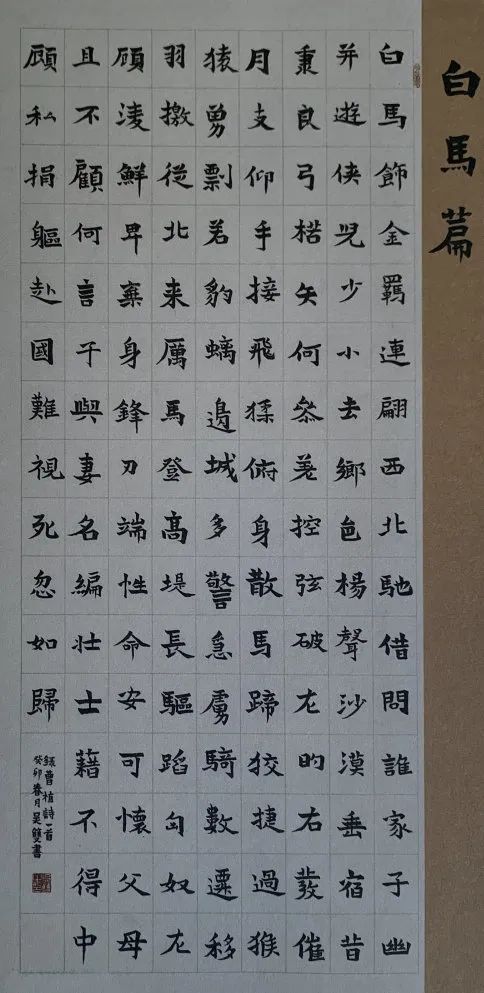 白馬篇
白馬飾金羈連翩西北馳借問誰家子幽
并遊俠兒少小去鄉邑楊聲沙漠垂宿昔
秉良弓楛矢何參差控弦破左的右發催
月支仰手接飛猱俯身散馬蹄狡捷過猴
猿勇剽若豹螭邊城多警急虜騎數遷移
羽檄從北来厲馬登高堤長驅蹈匈奴左
頋淩鮮卑棄身鋒刃端性命安可懷父母
且不顧何言子與妻名編壯士藉不得中
頋私捐軀赴國難視死忽如歸
錄曹植詩一首
癸卯春月吴雙書